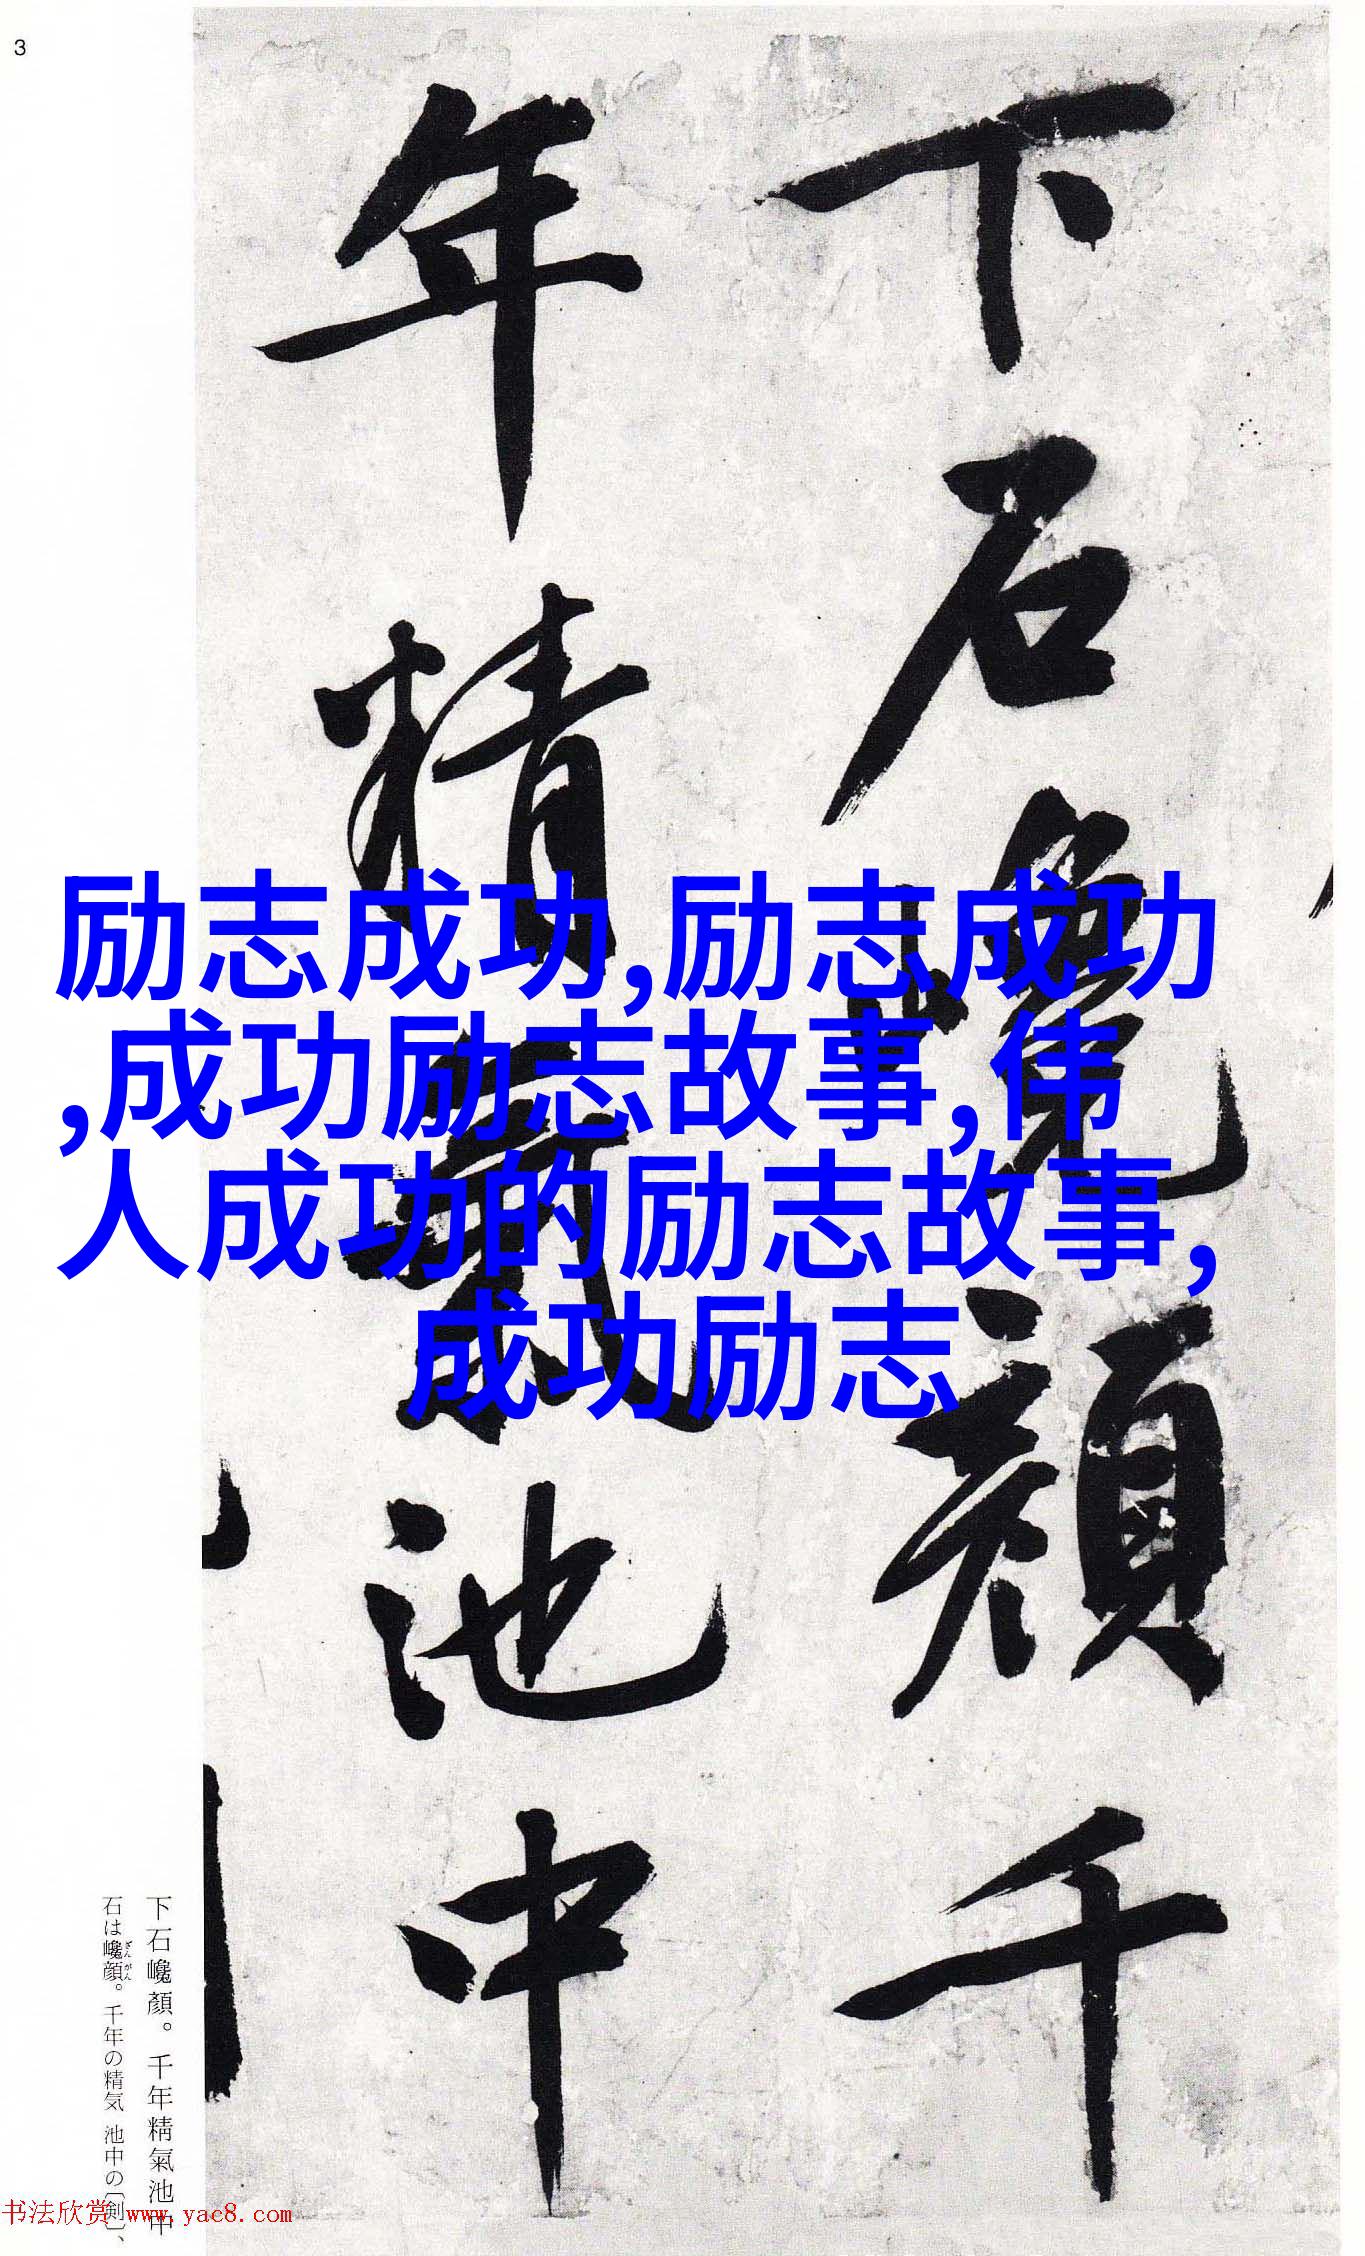 3
下石巉顔千
年精氣池中
励志成功,励志成功
,成功励志故事,伟
人成功的励志故事,
成功励志
下石巉顏。千年精氣池中
石は巉顔。千年の精気 池中の〔剣〕、
ざんがん
书法欣赏 www.yac8.com